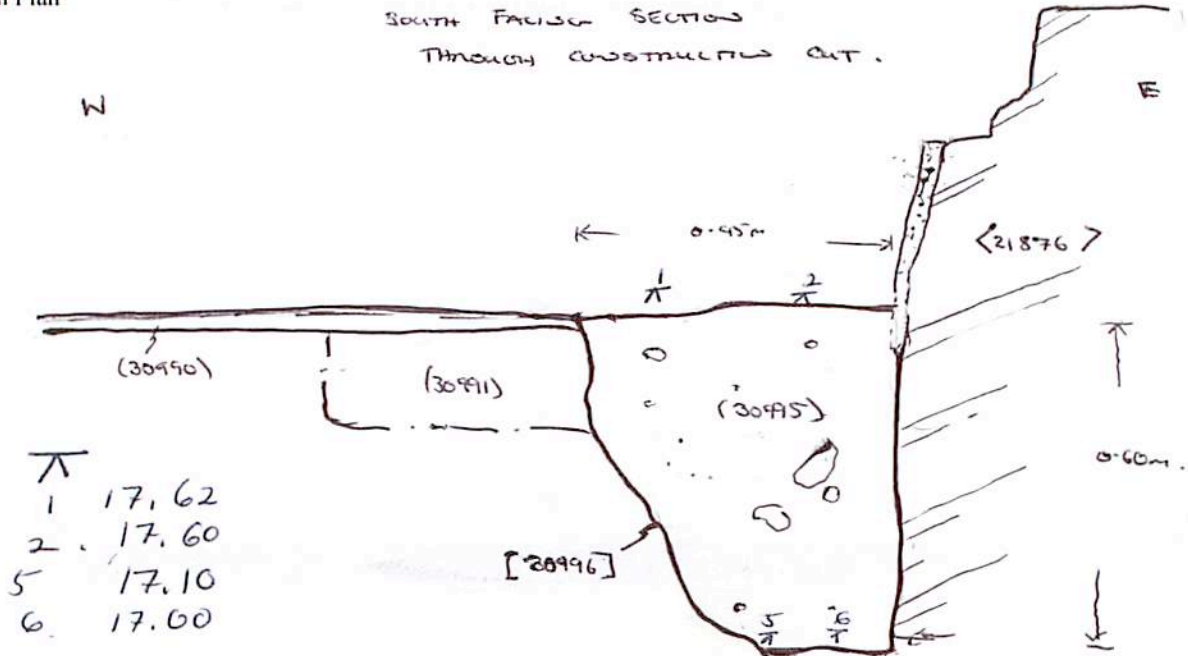 Plan
SOUTH FACING SECTION
THROUGH CONSTRUCTION CUT.
W
E
0.45m
<21876>
1
2
(30990)
(30991)
(30995)
0.60m.
1 17.62
2. 17.60
5 17.10
6. 17.00
[30996]
5
6